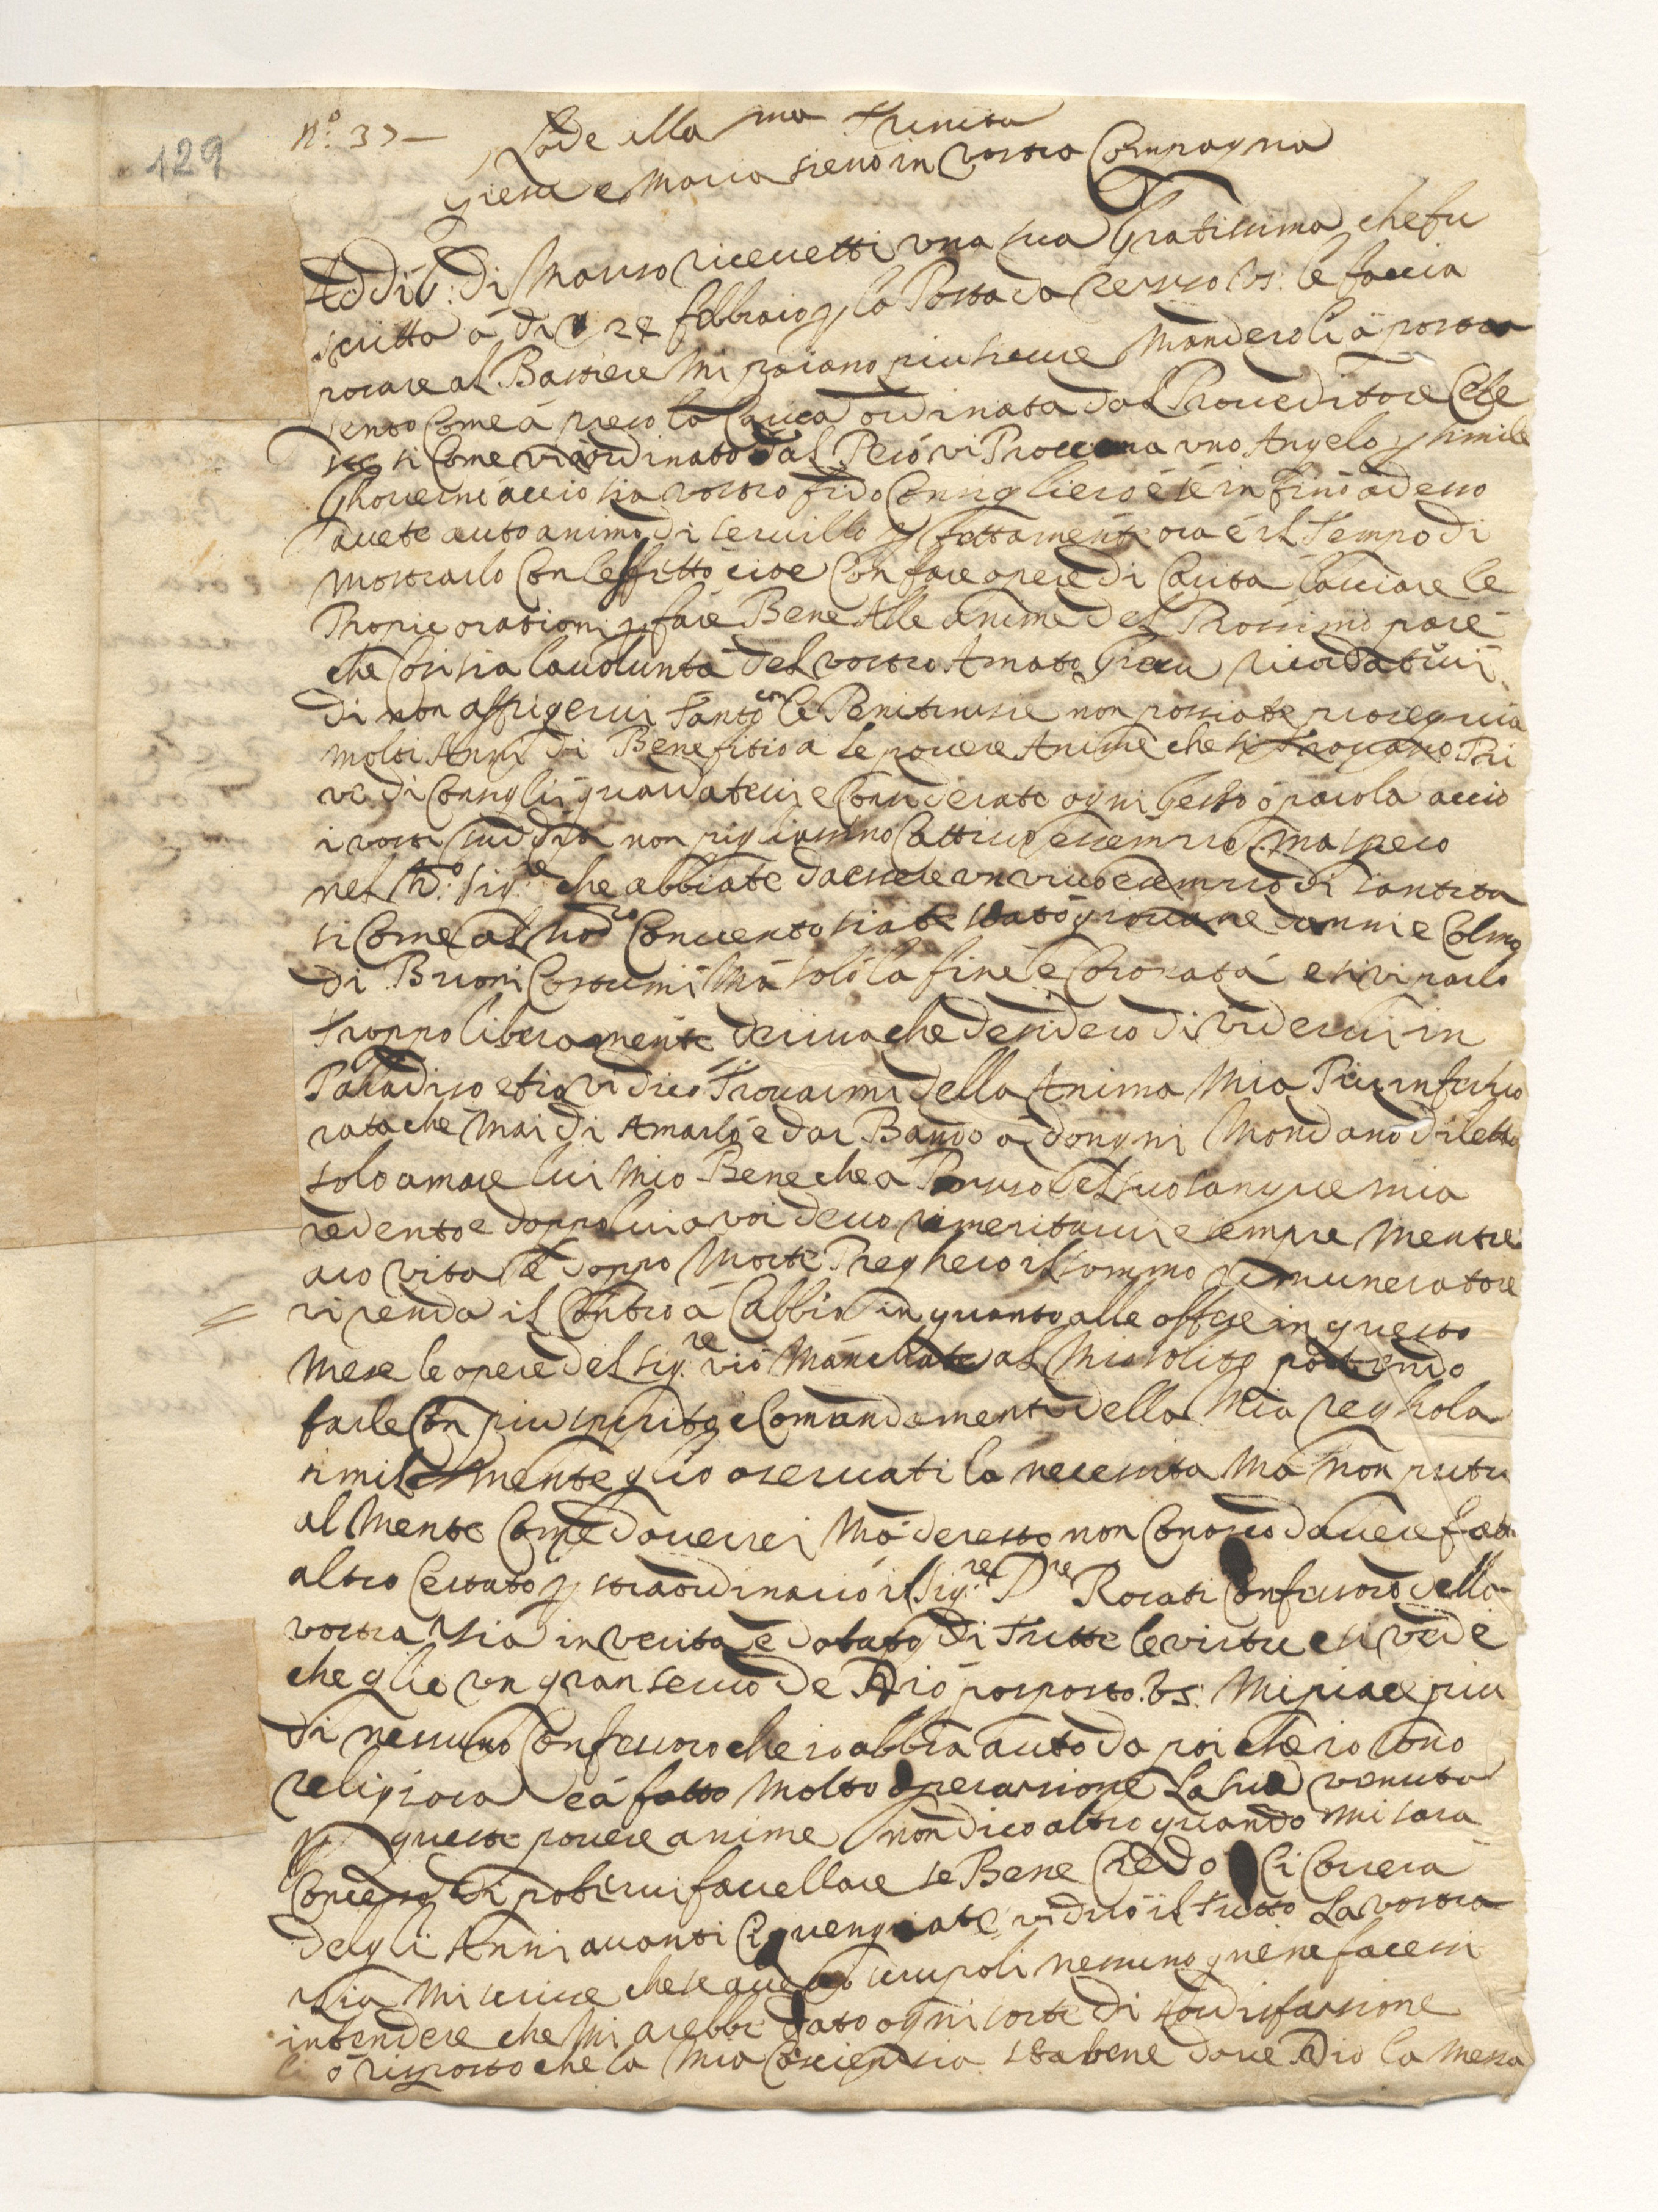 129
nº: 37 –
Lode alla ma trinita
Giesu e Maria sieno in vostra Compagnia
Addi 6: di Marzo riceuetti una sua Gratissima che fu
scritta á di 24 febbraio p la Posta da VS: le faccia
posare al Barriere mi paiano piu sicure Manderoli á posta
sento Come á preso la Carica ordinata dal Proueditore Cele
si Come ordinato dal Peró vi Prouerra uno Angelo p simile
Ghouerno áccio sia vostro fido Consigliero é se in fino adesso
auete auto animo di seruillo p fettamente ora é il tempo di
mostrarlo Con leffetto cioe Con fare opere di Carita lasciare le
Propie orationi p fare Bene Alle Anime del Prossimo pare
che Cosi sia la uolunta del vostro Amato Giesu ricordateui
di non affrigerui tanto con le Penitensie non possiate proseguir
molti Anni di Benefitio a le pouere Anime che si trouano Pri
ve di Consigli guardateui e Considerate ogni gesto ó parola accio
i vostri sudditi non pigliassino Cattiuo esempio ma spero
nel N.º sig.re che abbiate da essere un viuo esempio di santita
si Come al nos.ro Conuento siate stato giouane danni e Colmo
di Buoni Costumi Má solo la fine é Coronata é si vi parlo
troppo liberamente deriua che desidero di vederui in
Paradiso e tio vi dico trouarmi della Anima Mia Piu inferuo
rata che Mai di Amarlo é dar Bando a dongni Mondano diletto
solo amare lui Mio Bene che a Preso del suo sangue mia
redento e doppo lui a voi deuo rimeritarui e sempre mentre
aro vita é doppo Morte Preghero il sommo remuneratore
vi renda il Centro á Cabbio in quanto alle offese in questo
Mese le opere del sig.re vió Manchate al mio solito potendo
farle Con piu spirito e Comandamenti della Mia reghola
similmente glio oseruati la necessita Ma non puntu
al mente Come douerrei Má deresto non Conosco dauere fatto
altro Cessato p straordinario il sig.re P.re Rosati Confessoro della
vostra Zia in verita é dotato di tutte le virtu e si vede
che glie un gran seruo de Dio posposto. VS: mi piace piu
di nessuno Confessoro che io abbia auto da poi che io sono
religiosa e á fatto molto operazione la sua venuta
p queste pouere anime non dico altro quando mi sara
Concesso di poterui fauellare se Bene Credo Ci Correra
degli Anni auanti Ci venghiate vi dirò il tutto La vostra
Zia mi scrisse che se aueuo scrupoli nessuno gnene facessi
intendere che mi arebbe dato ogni sorte di sodisfazione
li ó risposto che la Mia Cosciensia sta bene doue Dio la messa